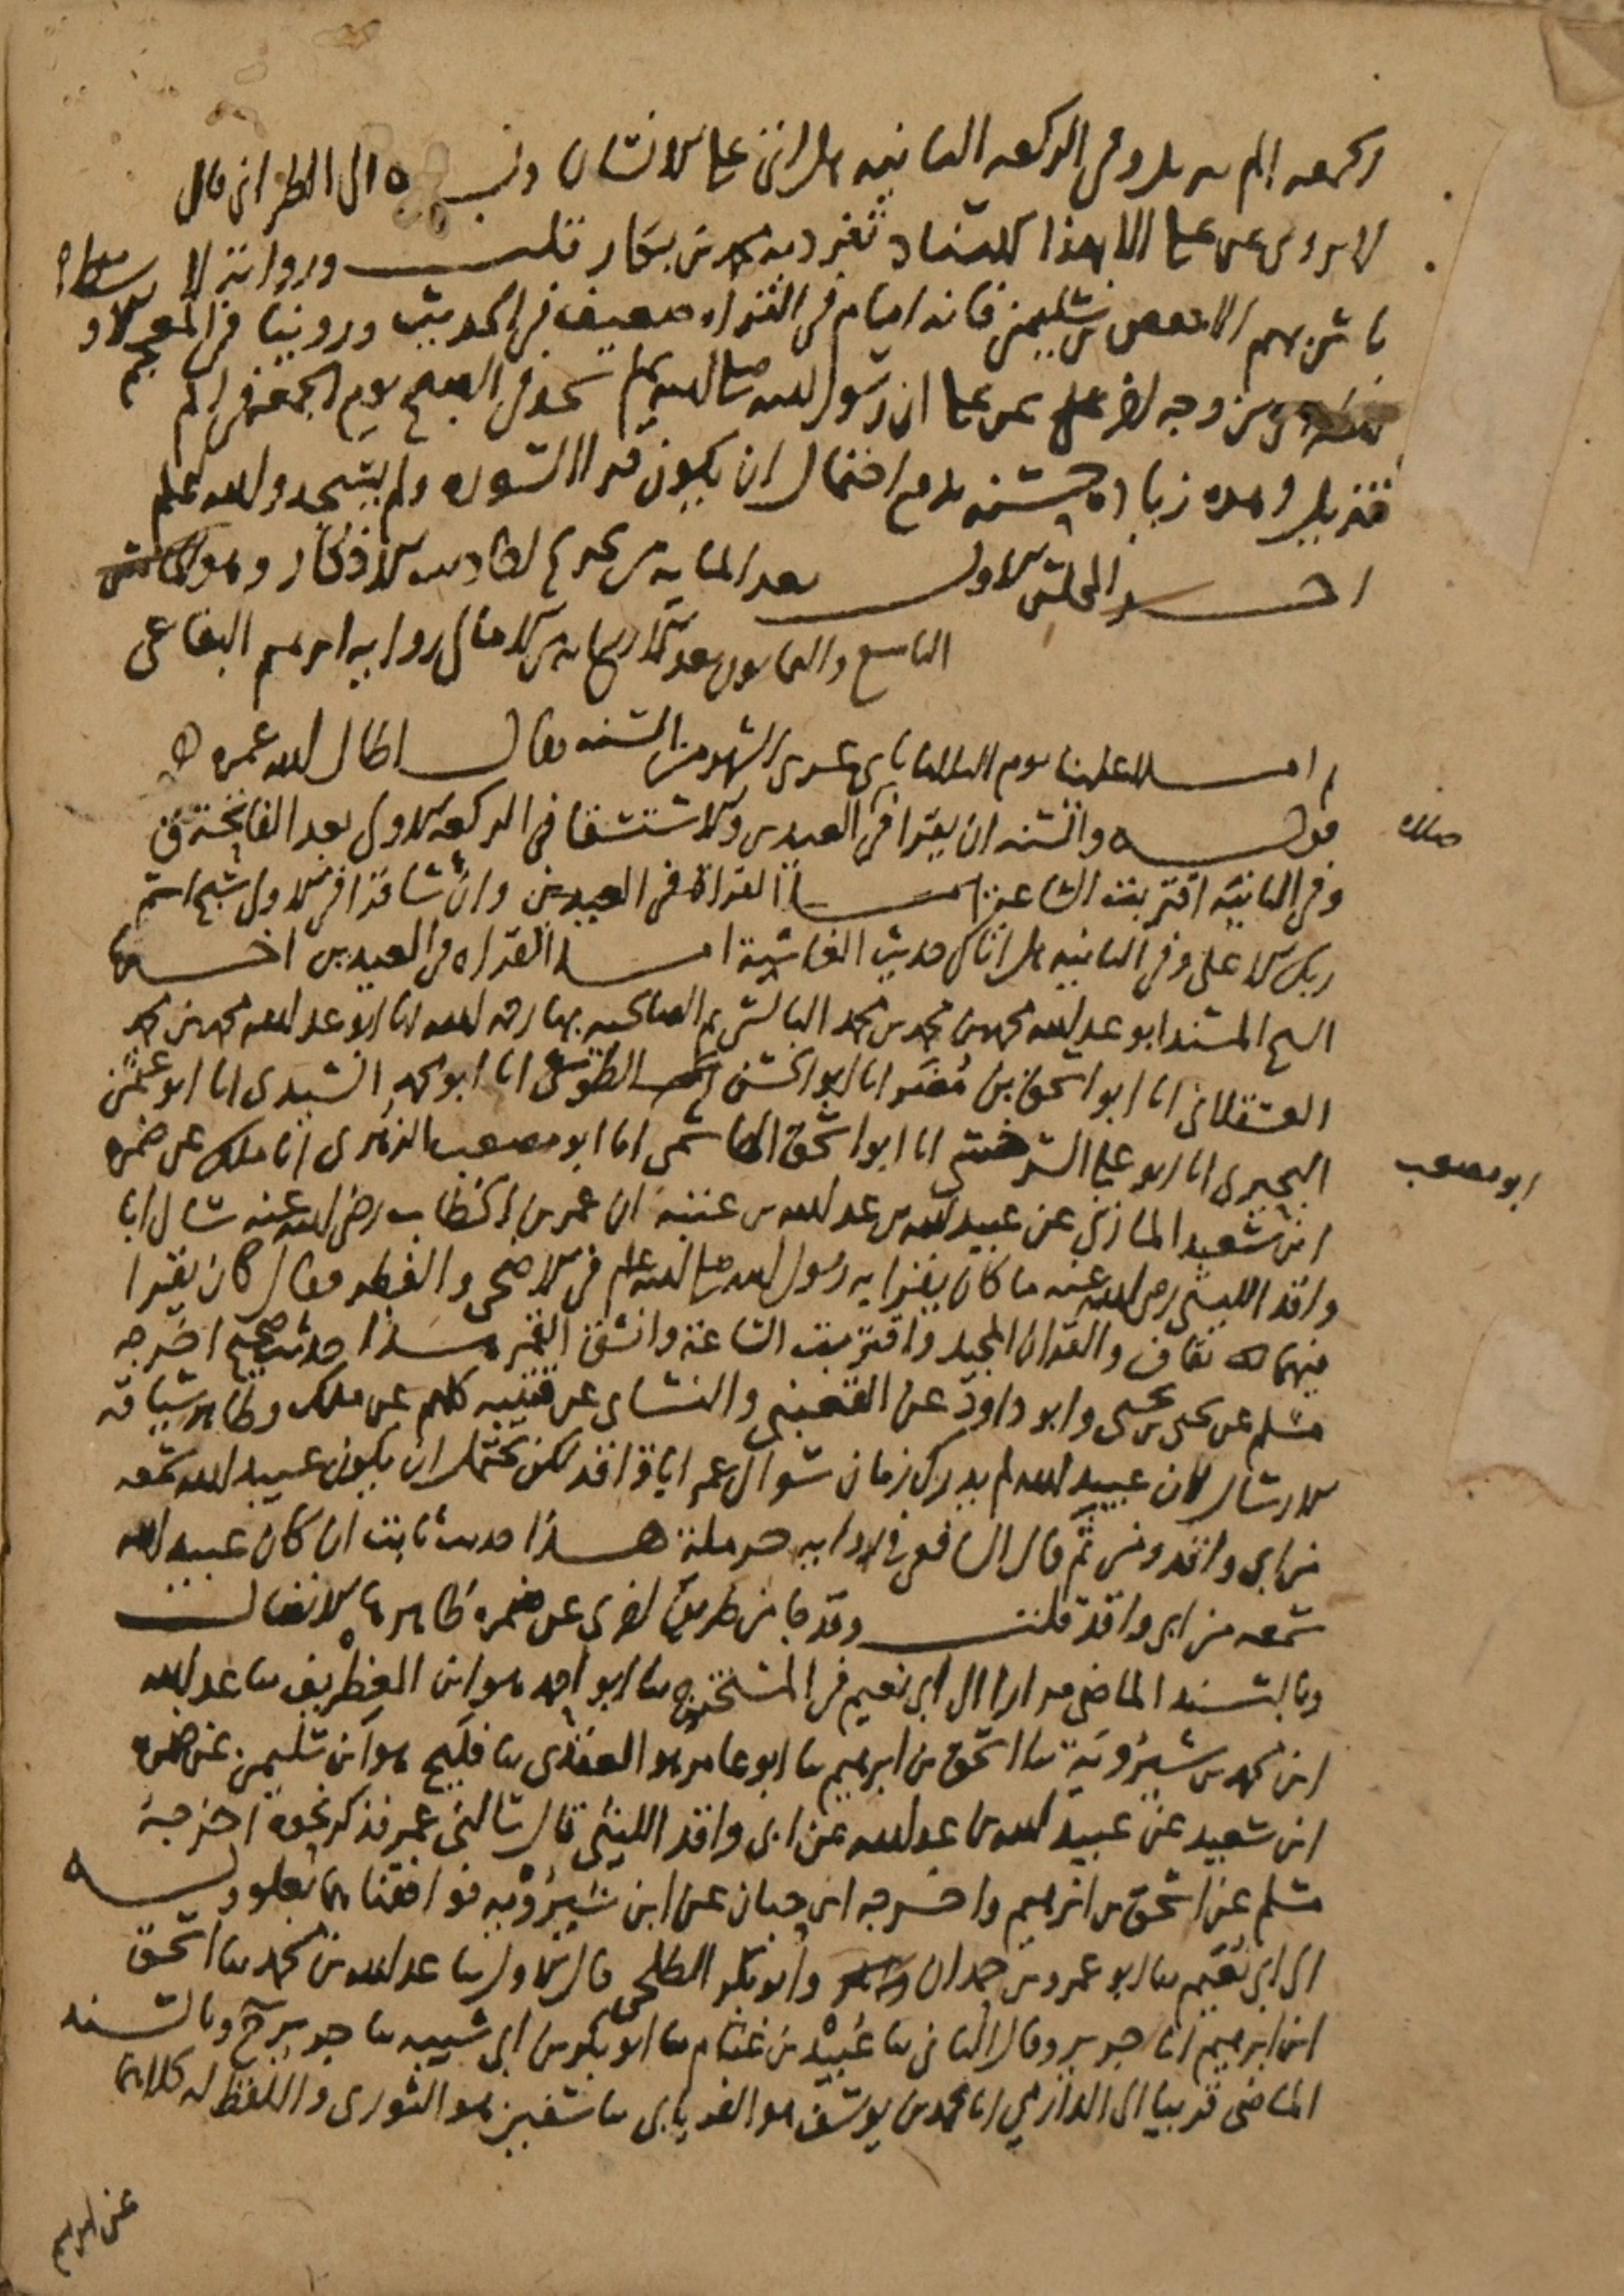 الجمعه الم تنزيل وفي الركعه الثانيه هل اتى على الانسان وبه الى الطبراني قال
لا يروى عن علي الا بهذا الاسناد تفرد به محمد بن بكار قلت ورواته لا
باس بهم الا حفص بن سليمن فانه امام في القراه ضعيف في الحديث وروينا في المعجم الاوسط
من وجه اخر عن علي ان رسول الله صلى الله عليه وسلم سجد في الصبح يوم الجمعه في الم
تنزيل وهذه زياده حسنه تدفع احتمال ان يكون قرا السوره ولم يسجد والله اعلم
اخر المجلس الاول بعد المايه من تخريج احاديث الاذكار وهو
التاسع والثمانون بعد الاربعمايه من الامالي روايه ابرهيم البقاعي
ثم املا علينا يوم الثلاثا ثاني عشري الشهر من السنه فقال اطال الله عمره
صلاه
قوله والسنه ان يقرا في العيدين والاستسقا في الركعه الاولى بعد الفاتحة ق
وفي الثانيه اقتربت الساعة اما القراة في العيدين وان شا قرا في الاولى سبح اسم
ربك الاعلى وفي الثانيه هل اتاك حديث الغاشية اما القراه في العيدين اخبرنا
الشيخ المسند ابو عبد الله محمد بن محمد بن محمد البالسي ثم الصالحي بها رحمه الله انا ابو عبد الله محمد بن محمد
العسقلاني انا ابو اسحق بن مضر انا ابو الحسن الطوسي انا ابو محمد السيدي انا ابو عثمن
البحيري انا ابو علي السرخسي انا ابو اسحق الهاشمي انا ابو مصعب الزهري انا ملك عن ضمره
ابو مصعب
ابن سعيد المازني عن عبيد الله بن عبد الله بن عتبة ان عمر بن الخطاب رضي الله عنه سال ابا
واقد الليثي رضي الله عنه ما كان يقرا به رسول الله صلى الله عليه وسلم في الاضحى والفطر فقال كان يقرا
فيهما بقاف والقران المجيد واقتربت الساعة وانشق القمر هذا حديث صحيح اخرجه
مسلم عن يحيى بن يحيى وابو داود عن القعنبي والنساي عن قتيبه كلهم عن ملك وظاهر سياقه
الارسال لان عبيد الله لم يدرك زمان سوال عمر ابا واقد لكن يحتمل ان يكون عبيد الله سمعه
من ابي واقد ومن ثم قال الشافعي في روايه حرملة هذا حديث ثابت ان كان عبيد الله
سمعه من ابي واقد قلت وقد جا من طريق اخرى عن ضمره ظاهرها الاتصال
وبالسند الماضي مرارا الى ابي نعيم في المستخرج ثنا ابو احمد هو ابن الغطريف ثنا عبد الله
ابن محمد بن شيرويه ثنا اسحق بن ابرهيم ثنا ابو عامر هو العقدي ثنا فليح هو ابن سليمن عن ضمره
ابن سعيد عن عبيد الله بن عبد الله عن ابي واقد الليثي قال سالني عمر فذكر نحوه اخرجه
مسلم عن اسحق بن ابرهيم واخرجه ابن حبان عن ابن شيرويه فوافقناهما بعلو وبه
الى ابي نعيم ثنا ابو عمرو بن حمدان وابو بكر الطلحي قال الاول ثنا عبد الله بن محمد ثنا اسحق
ابن ابرهيم انا جرير وقال الثاني ثنا عبيد بن غنام ثنا ابو بكر بن ابي شيبه ثنا جرير ح وبالسند
الماضي قريبا الى الدارمي انا محمد بن يوسف هو الفريابي ثنا سفين هو الثوري واللفظ له كلاهما
عن ابرهيم